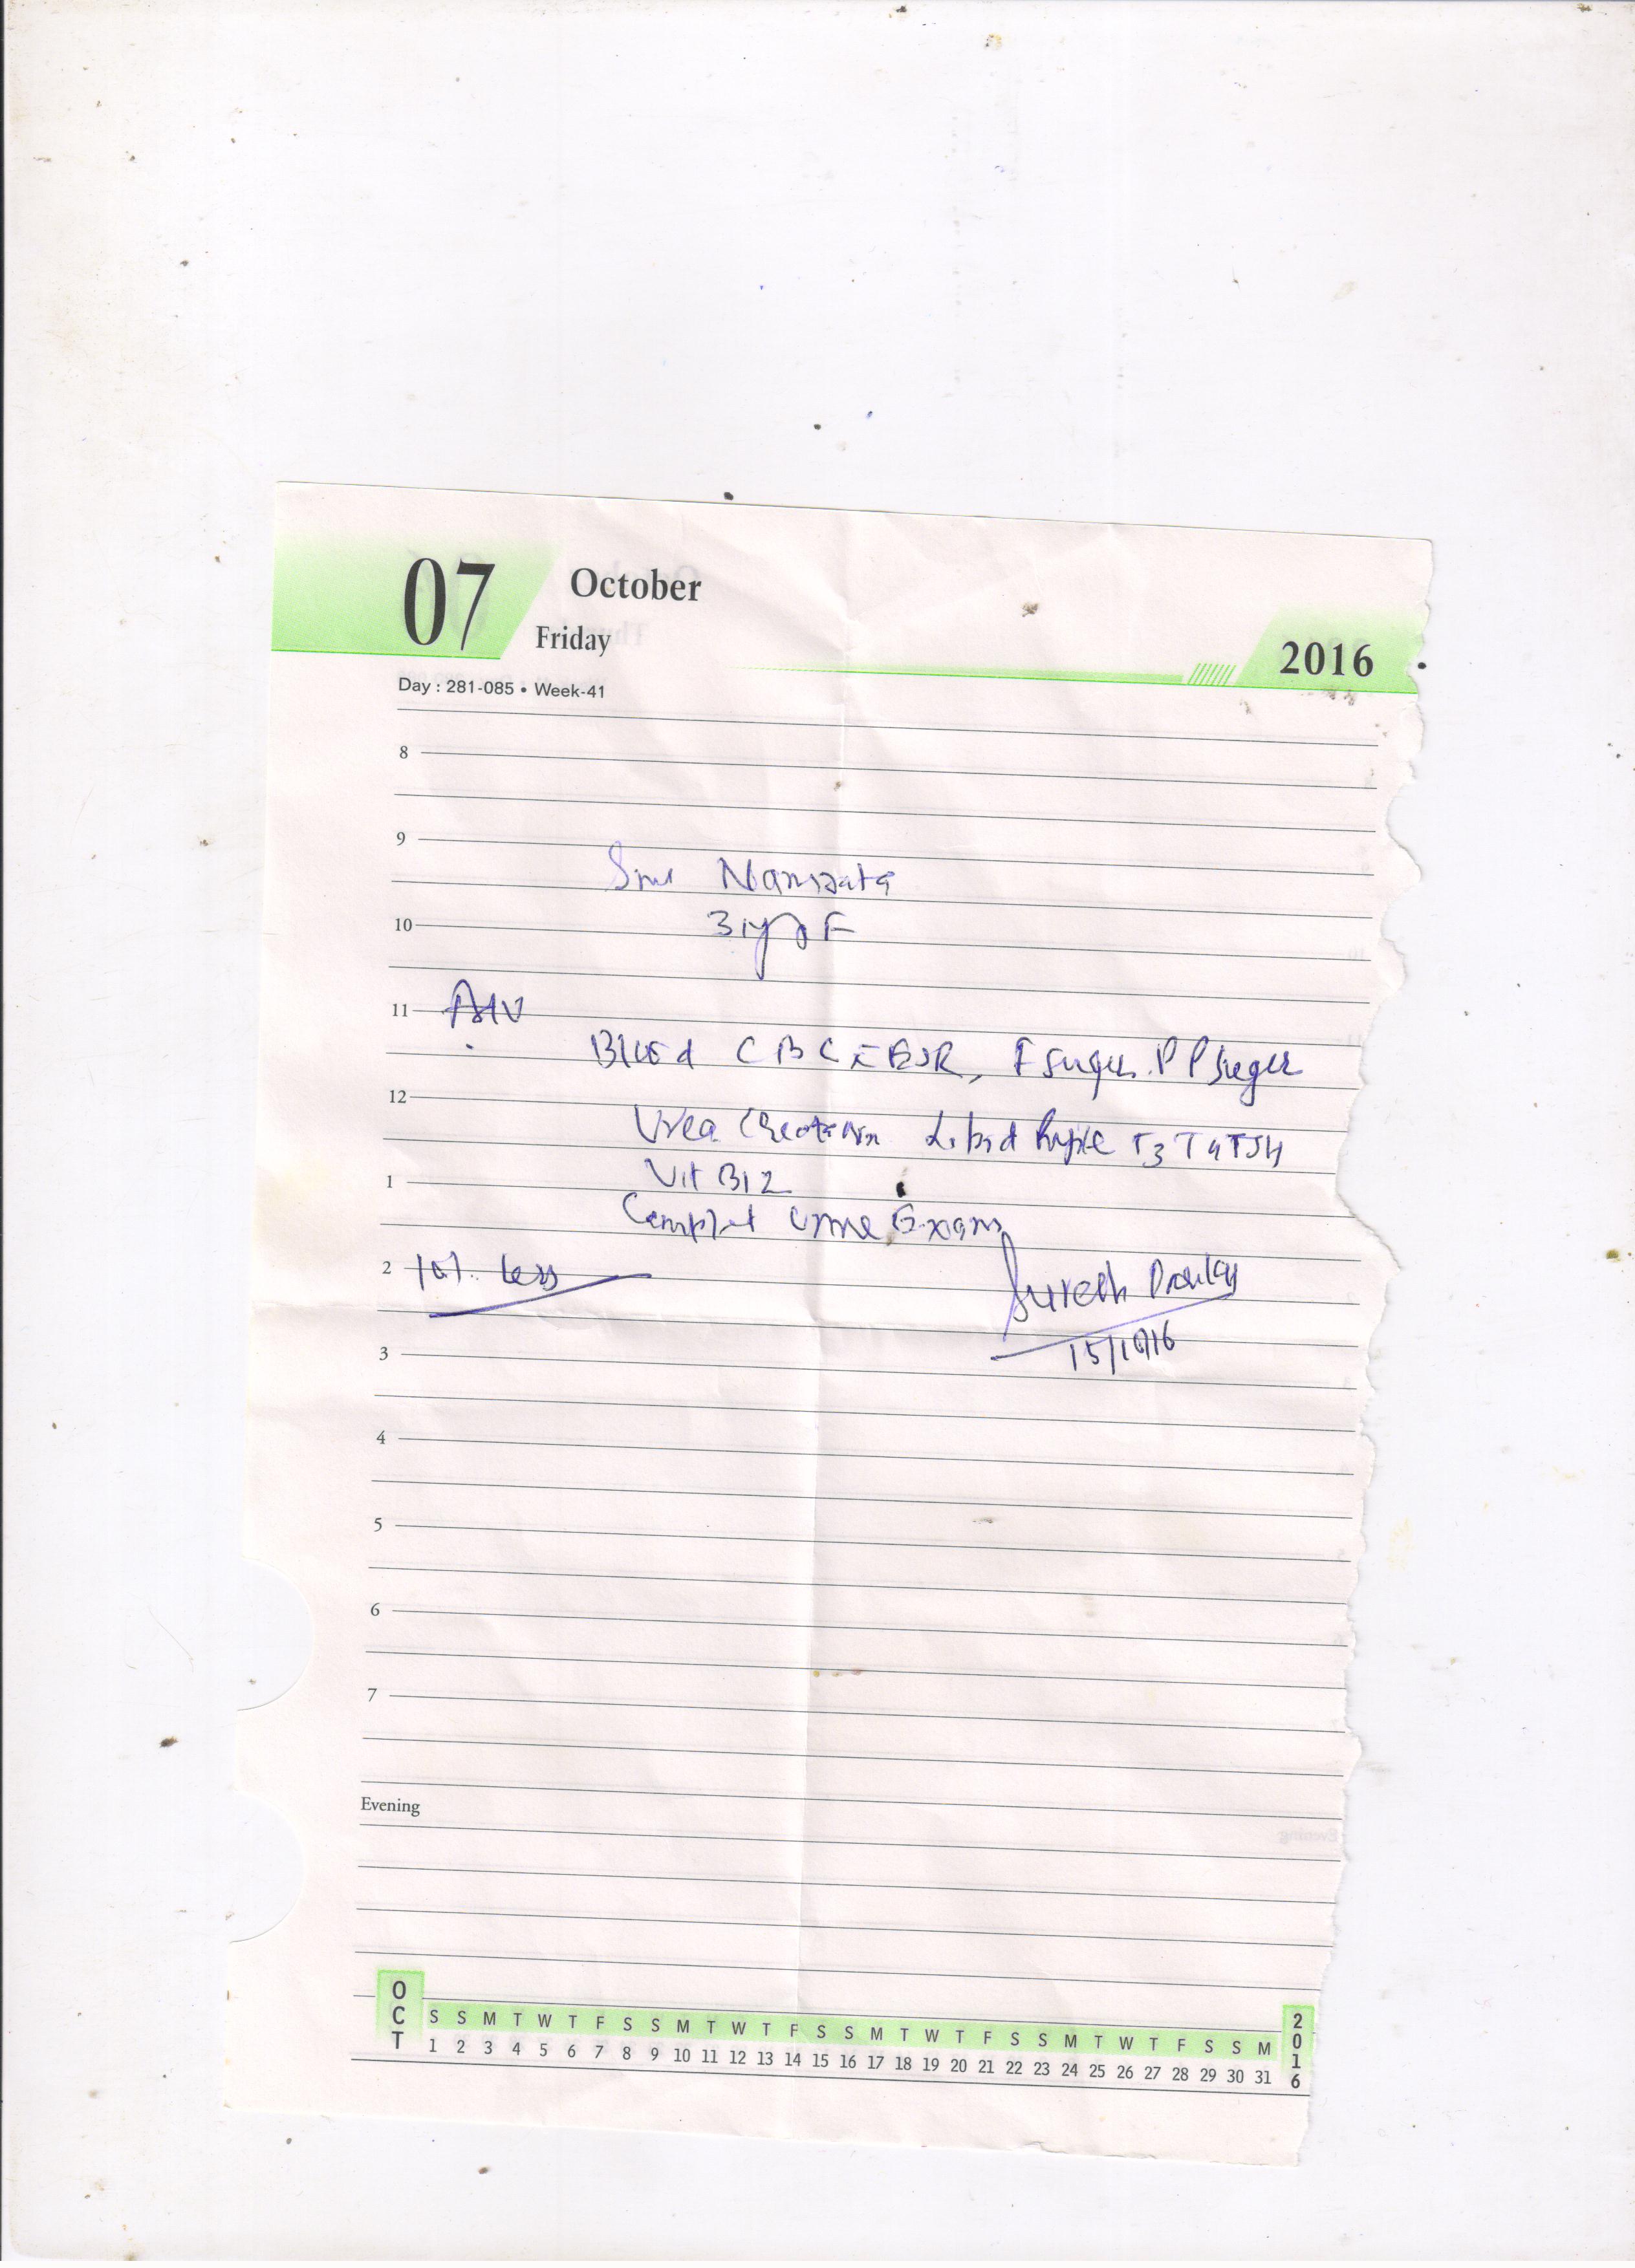 07 October
Friday
2016
Day : 281-085 • Week-41
8
9
Smt Namrata
10
31 yr F
11 Adv
Blood CBC ESR, F Suger. P P Suger
12
Urea Creatinin Lipid Profile T3 T4 TSH
1
Vit B12
Complet Urine Exam
2 10%. Less
Suresh
15/10/16
3
4
5
6
7
Evening
OCT S S M T W T F S S M T W T F S S M T W T F S S M T W T F S S M 2016
1 2 3 4 5 6 7 8 9 10 11 12 13 14 15 16 17 18 19 20 21 22 23 24 25 26 27 28 29 30 31